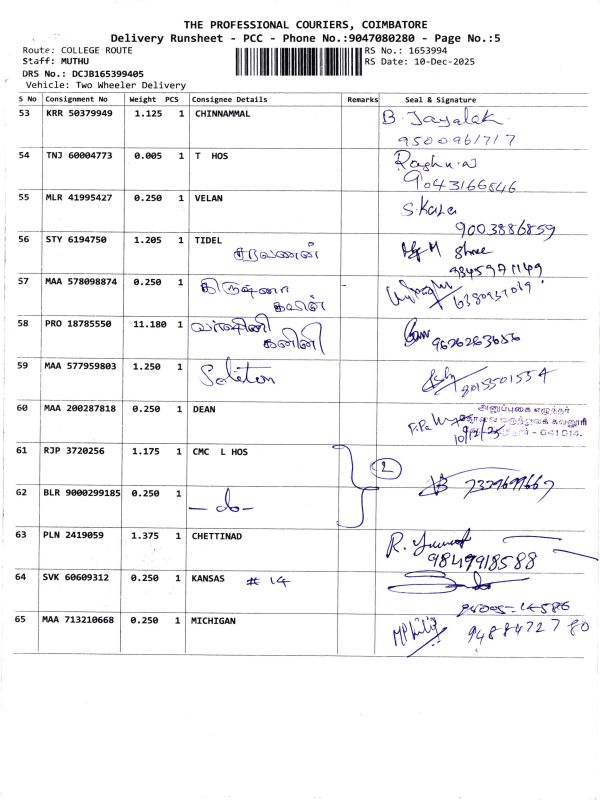 THE PROFESSIONAL COURIERS, COIMBATORE
Delivery Runsheet - PCC - Phone No.:9047080280 - Page No.:5
Route: COLLEGE ROUTE RS No.: 1653994
Staff: MUTHU RS Date: 10-Dec-2025
DRS No.: DCJB165399405
Vehicle: Two Wheeler Delivery
S No Consignment No Weight PCS Consignee Details Remarks Seal & Signature
53 KRR 50379949 1.125 1 CHINNAMMAL B. Jayalek
9500961717
54 TNJ 60004773 0.005 1 T HOS
9043166846
55 MLR 41995427 0.250 1 VELAN S. Kala
9003886859
56 STY 6194750 1.205 1 TIDEL
சரவணன் Shree
9845971149
57 MAA 578098874 0.250 1 கிருஷ்ணா -
கவின்
58 PRO 18785550 11.180 1 வர்ஷினி
கனினி 9626263656
59 MAA 577959803 1.250 1
8015501554
60 MAA 200287818 0.250 1 DEAN அனுப்புகை எழுத்தர்
மருத்துவக் கல்லூரி
10/12/25 - 641 014.
61 RJP 3720256 1.175 1 CMC L HOS 2
62 BLR 9000299185 0.250 1 - do -
63 PLN 2419059 1.375 1 CHETTINAD R.
9849918588
64 SVK 60609312 0.250 1 KANSAS # 14
94005-14586
65 MAA 713210668 0.250 1 MICHIGAN
9488472780